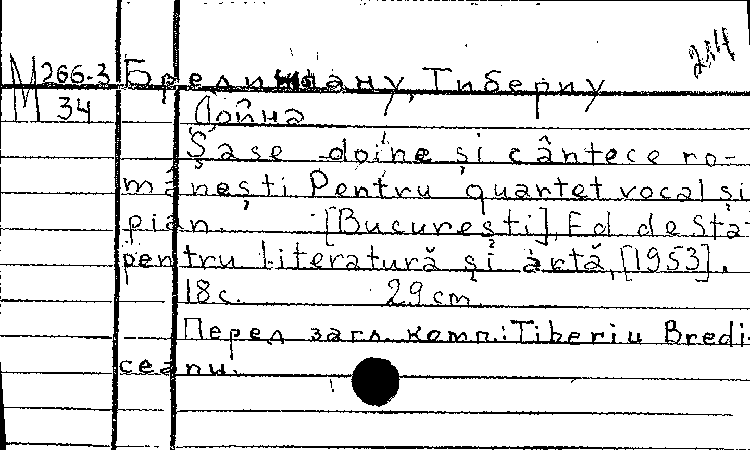 214
М 266-3 Бредичану, Тибериу
34 Дойна
Șase doine și cântece ro-
mânești Pentru quartet vocal și
pian. [București], Ed de Stat
pentru literatură și artă, [1953].
18 с. 29 cm.
Перед загл. комп.: Tiberiu Bredi-
ceanu.